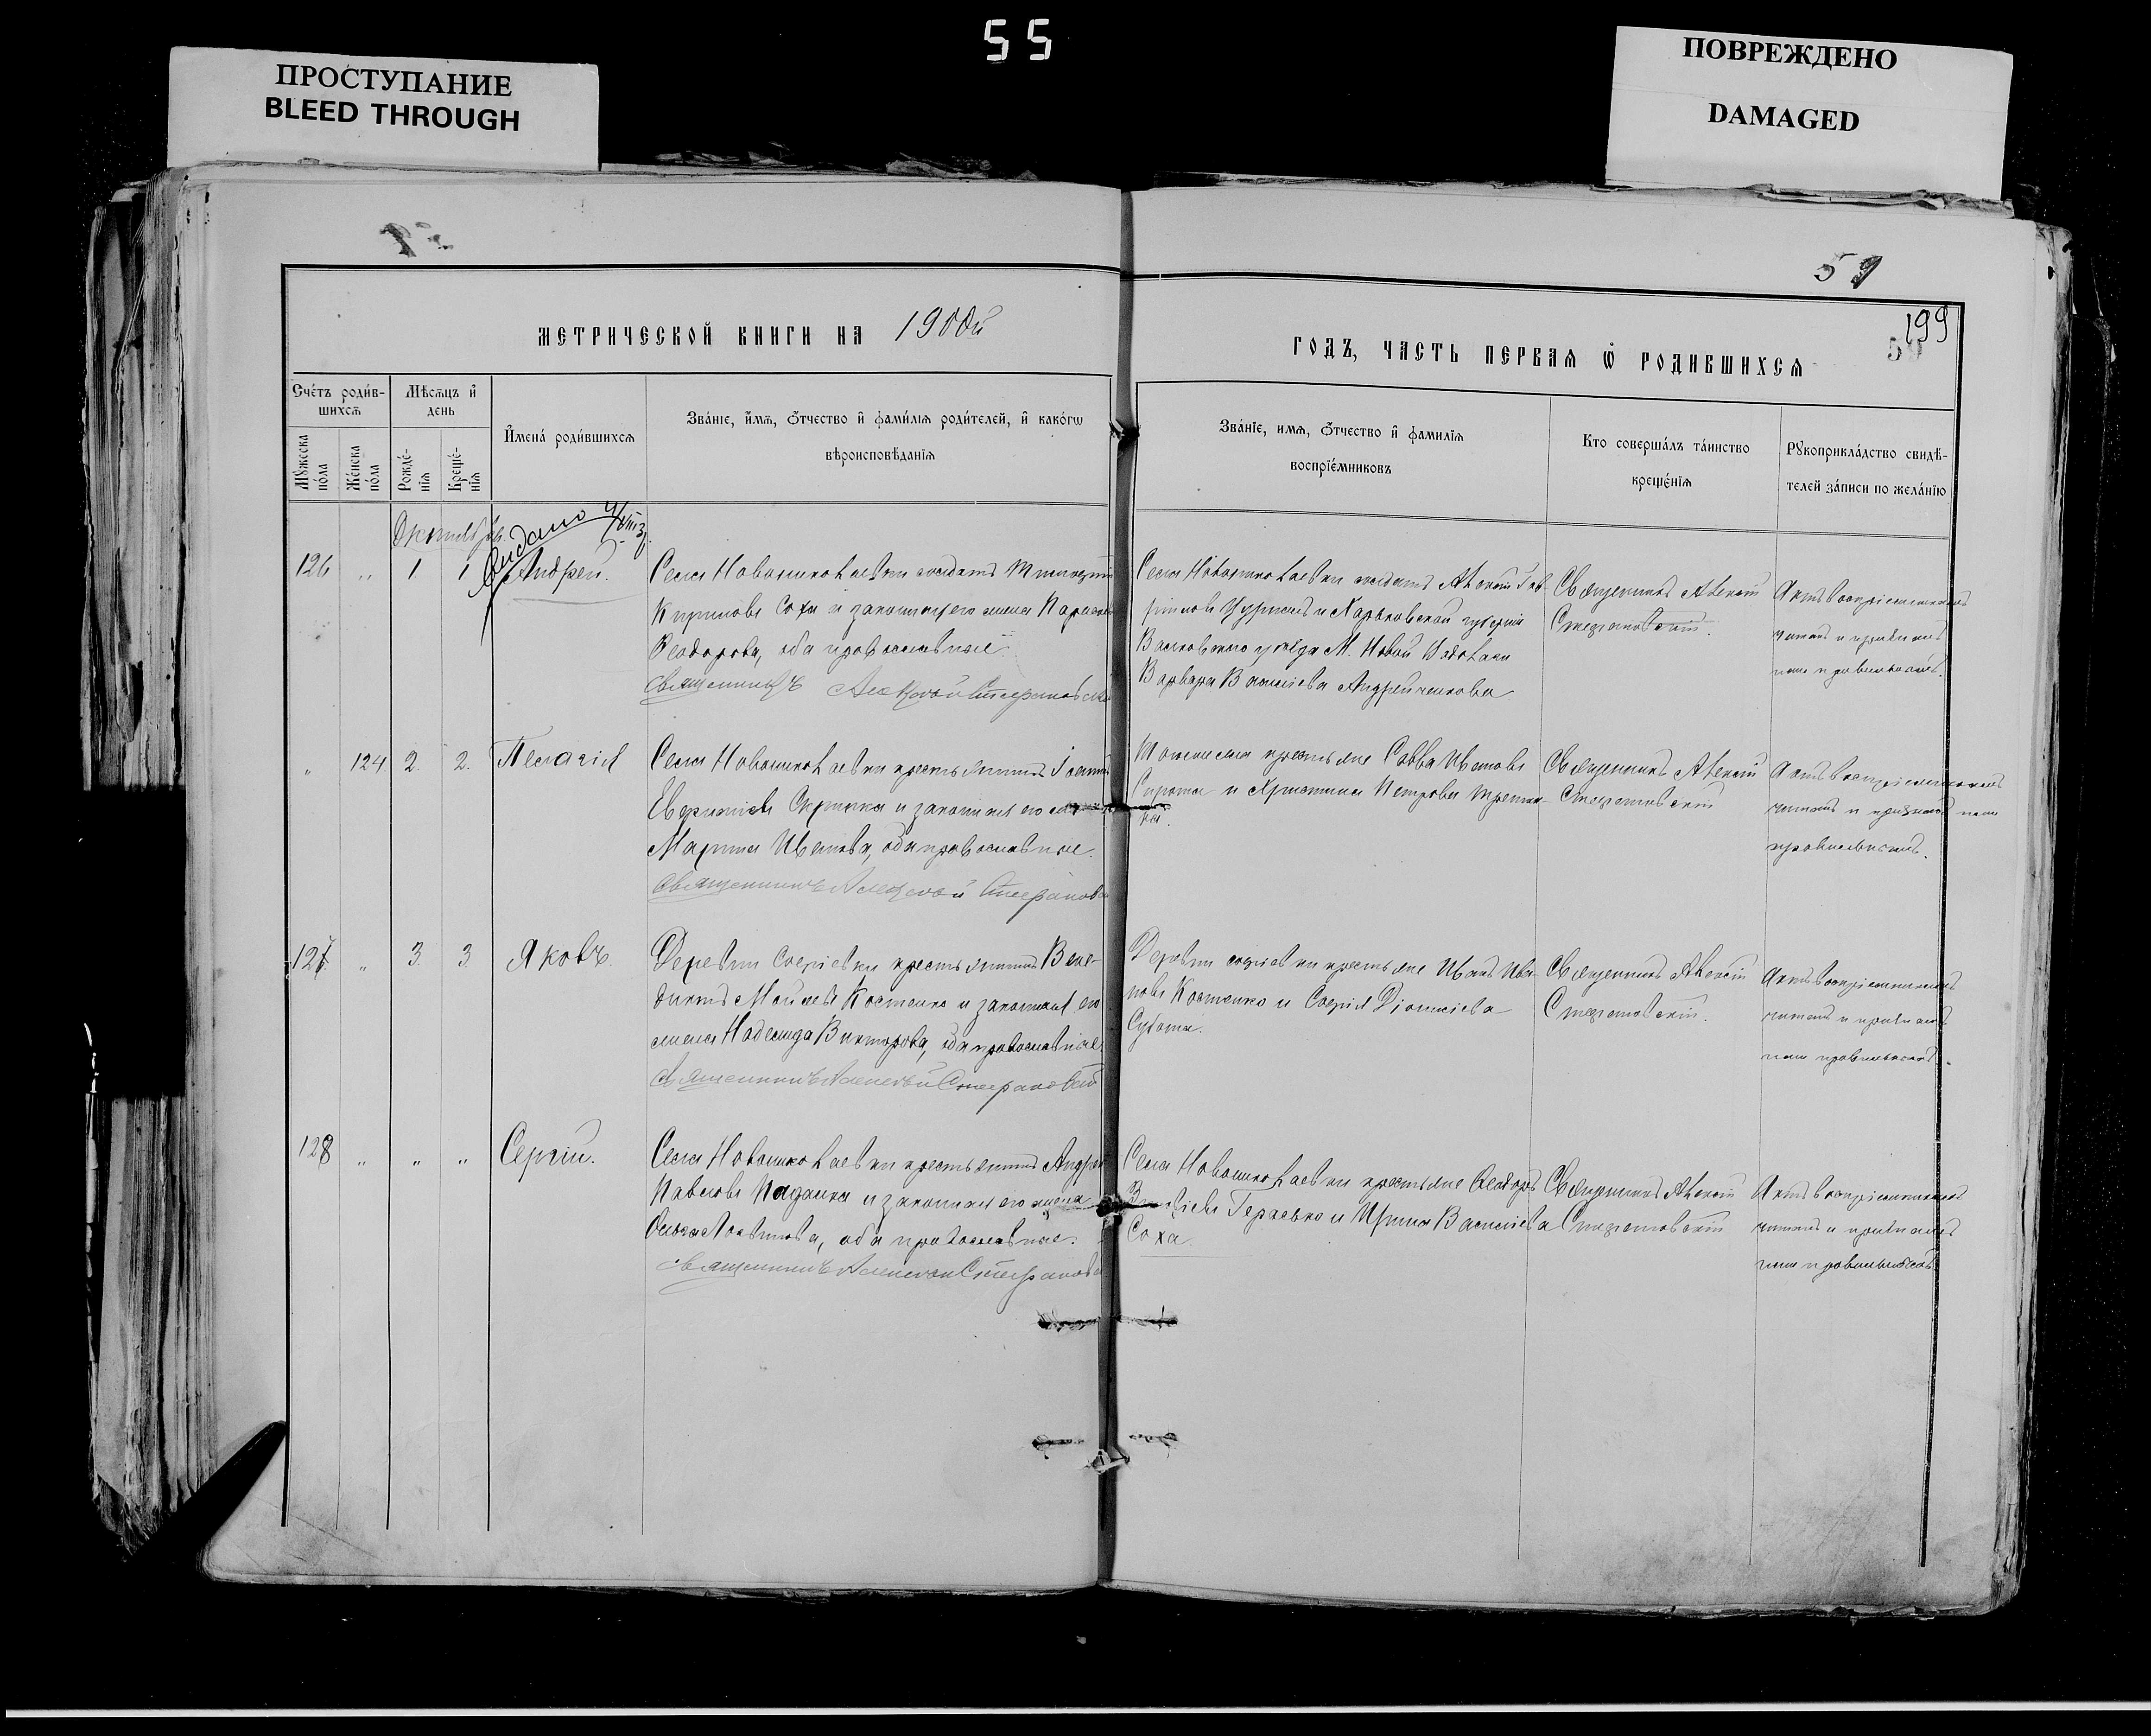 55
ПРОСТУПАНИЕ
BLEED THROUGH
ПОВРЕЖДЕНО
DAMAGED
59
199
59
МЕТРИЧЕСКОЙ КНИГИ НА 1900й
ГОДЪ, ЧАСТЬ ПЕРВАЯ Ѿ РОДИВШИХСЯ
Счéтъ роди́в-
шихсѧ
Мѣсѧцъ и҆
день
Мꙋ́жеска
по́ла
Же́нска
по́ла
Рожде́-
нїѧ
Креще́-
нїѧ
И҆мена̀ роди́вшихсѧ
Зва́нїе, и҆́мѧ, ѻ҆́тчество и҆ фами́лїѧ роди́телей, и҆ како́гѡ
вѣроисповѣ́данїѧ
Зва́нїе, имѧ, ѻ҆́тчество и҆ фамилїѧ
воспрїе́мниковъ
Кто соверша́лъ та́инство
креще́нїѧ
Рꙋкоприкла́дство свидѣ́-
телей за́писи по жела́нїю
Октябрь.
Выдано
126 " 1 1 Андрей.
Села Новониколаевки солдатъ Тимоѳей
Кириловъ Соха и законная его жена
Ѳеодорова, оба православные.
Священникъ Алексѣй Стефановскій
Села Новониколаевки солдатъ Алексѣй Гав-
риловъ и Харьковской губерніи
Валковского уѣзда М. Новой Водолаги
Варвара Василіева Андрейченкова
Священникъ Алексій
Стефановскій.
Актъ воспріемникамъ
читалъ и
правильность.
" 124 2. 2. Пелагія
Села Новониколаевки крестьянинъ Іоаннъ
Евфиміевъ Скрипка и законная его жена
Марина Иванова, оба православные.
Священникъ Алексѣй Стефановск
крестьяне Савва Ивановъ
Сирота и Христина Петрова
ка.
Священникъ Алексій
Стефановскій
Актъ воспріемникамъ
читалъ и
правильность.
127 " 3. 3. Яковъ.
Деревни Софіевки крестьянинъ Вене-
диктъ Костенко и законная его
жена Надежда Викторова, оба православные.
Священникъ Алексѣй Стефановскій
Деревни Софіевки крестьяне Иванъ Ива-
новъ Костенко и Софія Діонисіева
Субота.
Священникъ Алексій
Стефановскій.
Актъ воспріемникамъ
читалъ и
правильность.
128 " " " Сергій.
Села Новониколаевки крестьянинъ Андрей
Павловъ Падалка и законная его жена
оба православные.
Священникъ Алексѣй Стефановск
Села Новониколаевки крестьяне Ѳеодоръ
Герасько и Ирина Василіева
Соха
Священникъ Алексій
Стефановскій
Актъ воспріемникамъ
читалъ и
правильность.